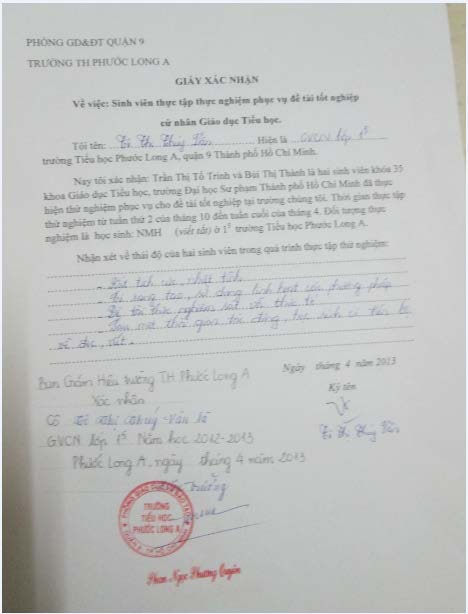 PHÒNG GD&ĐT QUẬN 9
TRƯỜNG TH PHƯỚC LONG A
GIẤY XÁC NHẬN
Về việc: Sinh viên thực tập thực nghiệm phục vụ đề tài tốt nghiệp
cử nhân Giáo dục Tiểu học.
Tôi tên: Thị Thúy Vân Hiện là GVCN lớp 1⁵
trường Tiểu học Phước Long A, quận 9 Thành phố Hồ Chí Minh.
Nay tôi xác nhận: Trần Thị Tố Trinh và Bùi Thị Thành là hai sinh viên khóa 35
khoa Giáo dục Tiểu học, trường Đại học Sư phạm Thành phố Hồ Chí Minh đã thực
hiện thử nghiệm phục vụ cho đề tài tốt nghiệp tại trường chúng tôi. Thời gian thực tập
thử nghiệm từ tuần thứ 2 của tháng 10 đến tuần cuối của tháng 4. Đối tượng thực
nghiệm là học sinh: NMH (viết tắt) ở 1⁵ trường Tiểu học Phước Long A.
Nhận xét về thái độ của hai sinh viên trong quá trình thực tập thử nghiệm:
- Rất tích cực, nhiệt tình
- sáng tạo, sử dụng linh hoạt các phương pháp
- Đề tài thực nghiệm sát với thực tế
- Sau một thời gian tác động, học sinh có tiến bộ
về đọc, viết.
Ngày tháng 4 năm 2013
Ban Giám Hiệu trường TH Phước Long A
Ký tên
Xác nhận
Cô Thị Thuý Vân là
GVCN lớp 1⁵ Năm học 2012-2013
Thị Thúy Vân
Phước Long A, ngày tháng 4 năm 2013
Trưởng
TRƯỜNG
TIỂU HỌC
PHƯỚC LONG A
Phan Ngọc Phương Quyên